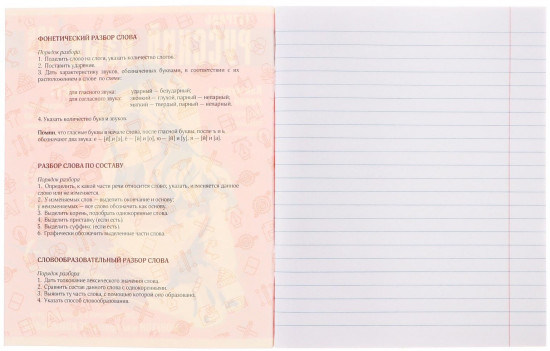 ФОНЕТИЧЕСКИЙ РАЗБОР СЛОВА
Порядок разбора
1. Поделить слово на слоги, указать количество слогов.
2. Поставить ударение.
3. Дать характеристику звуков, обозначенных буквами, в соответствии с их
расположением в слове по схеме:
для гласного звука: ударный — безударный;
для согласного звука: звонкий — глухой, парный — непарный;
мягкий — твердый, парный — непарный.
4. Указать количество букв и звуков.
Помни, что гласные буквы в начале слова, после гласной буквы, после ъ и ь
обозначают два звука: е — [й] и [э], ё — [й] и [о], ю — [й] и [у], я — [й] и [а].
РАЗБОР СЛОВА ПО СОСТАВУ
Порядок разбора
1. Определить, к какой части речи относится слово, указать, изменяется данное
слово или не изменяется.
2. У изменяемых слов — выделить окончание и основу;
у неизменяемых — все слово обозначить как основу.
3. Выделить корень, подобрать однокоренные слова.
4. Выделить приставку (если есть).
5. Выделить суффикс (если есть).
6. Графически обозначить выделенные части слова.
СЛОВООБРАЗОВАТЕЛЬНЫЙ РАЗБОР СЛОВА
Порядок разбора
1. Дать толкование лексического значения слова.
2. Сравнить состав данного слова с однокоренными.
3. Выявить ту часть слова, с помощью которой оно образовано.
4. Указать способ словообразования.